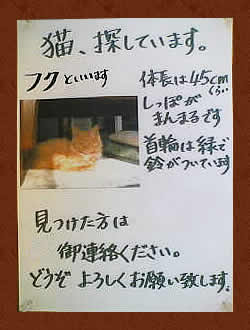 猫、探しています。
フクといいます
体長は45cmくらい
しっぽが
まんまるです
首輪は緑で
鈴がついています
見つけた方は
御連絡ください。
どうぞよろしくお願い致します。